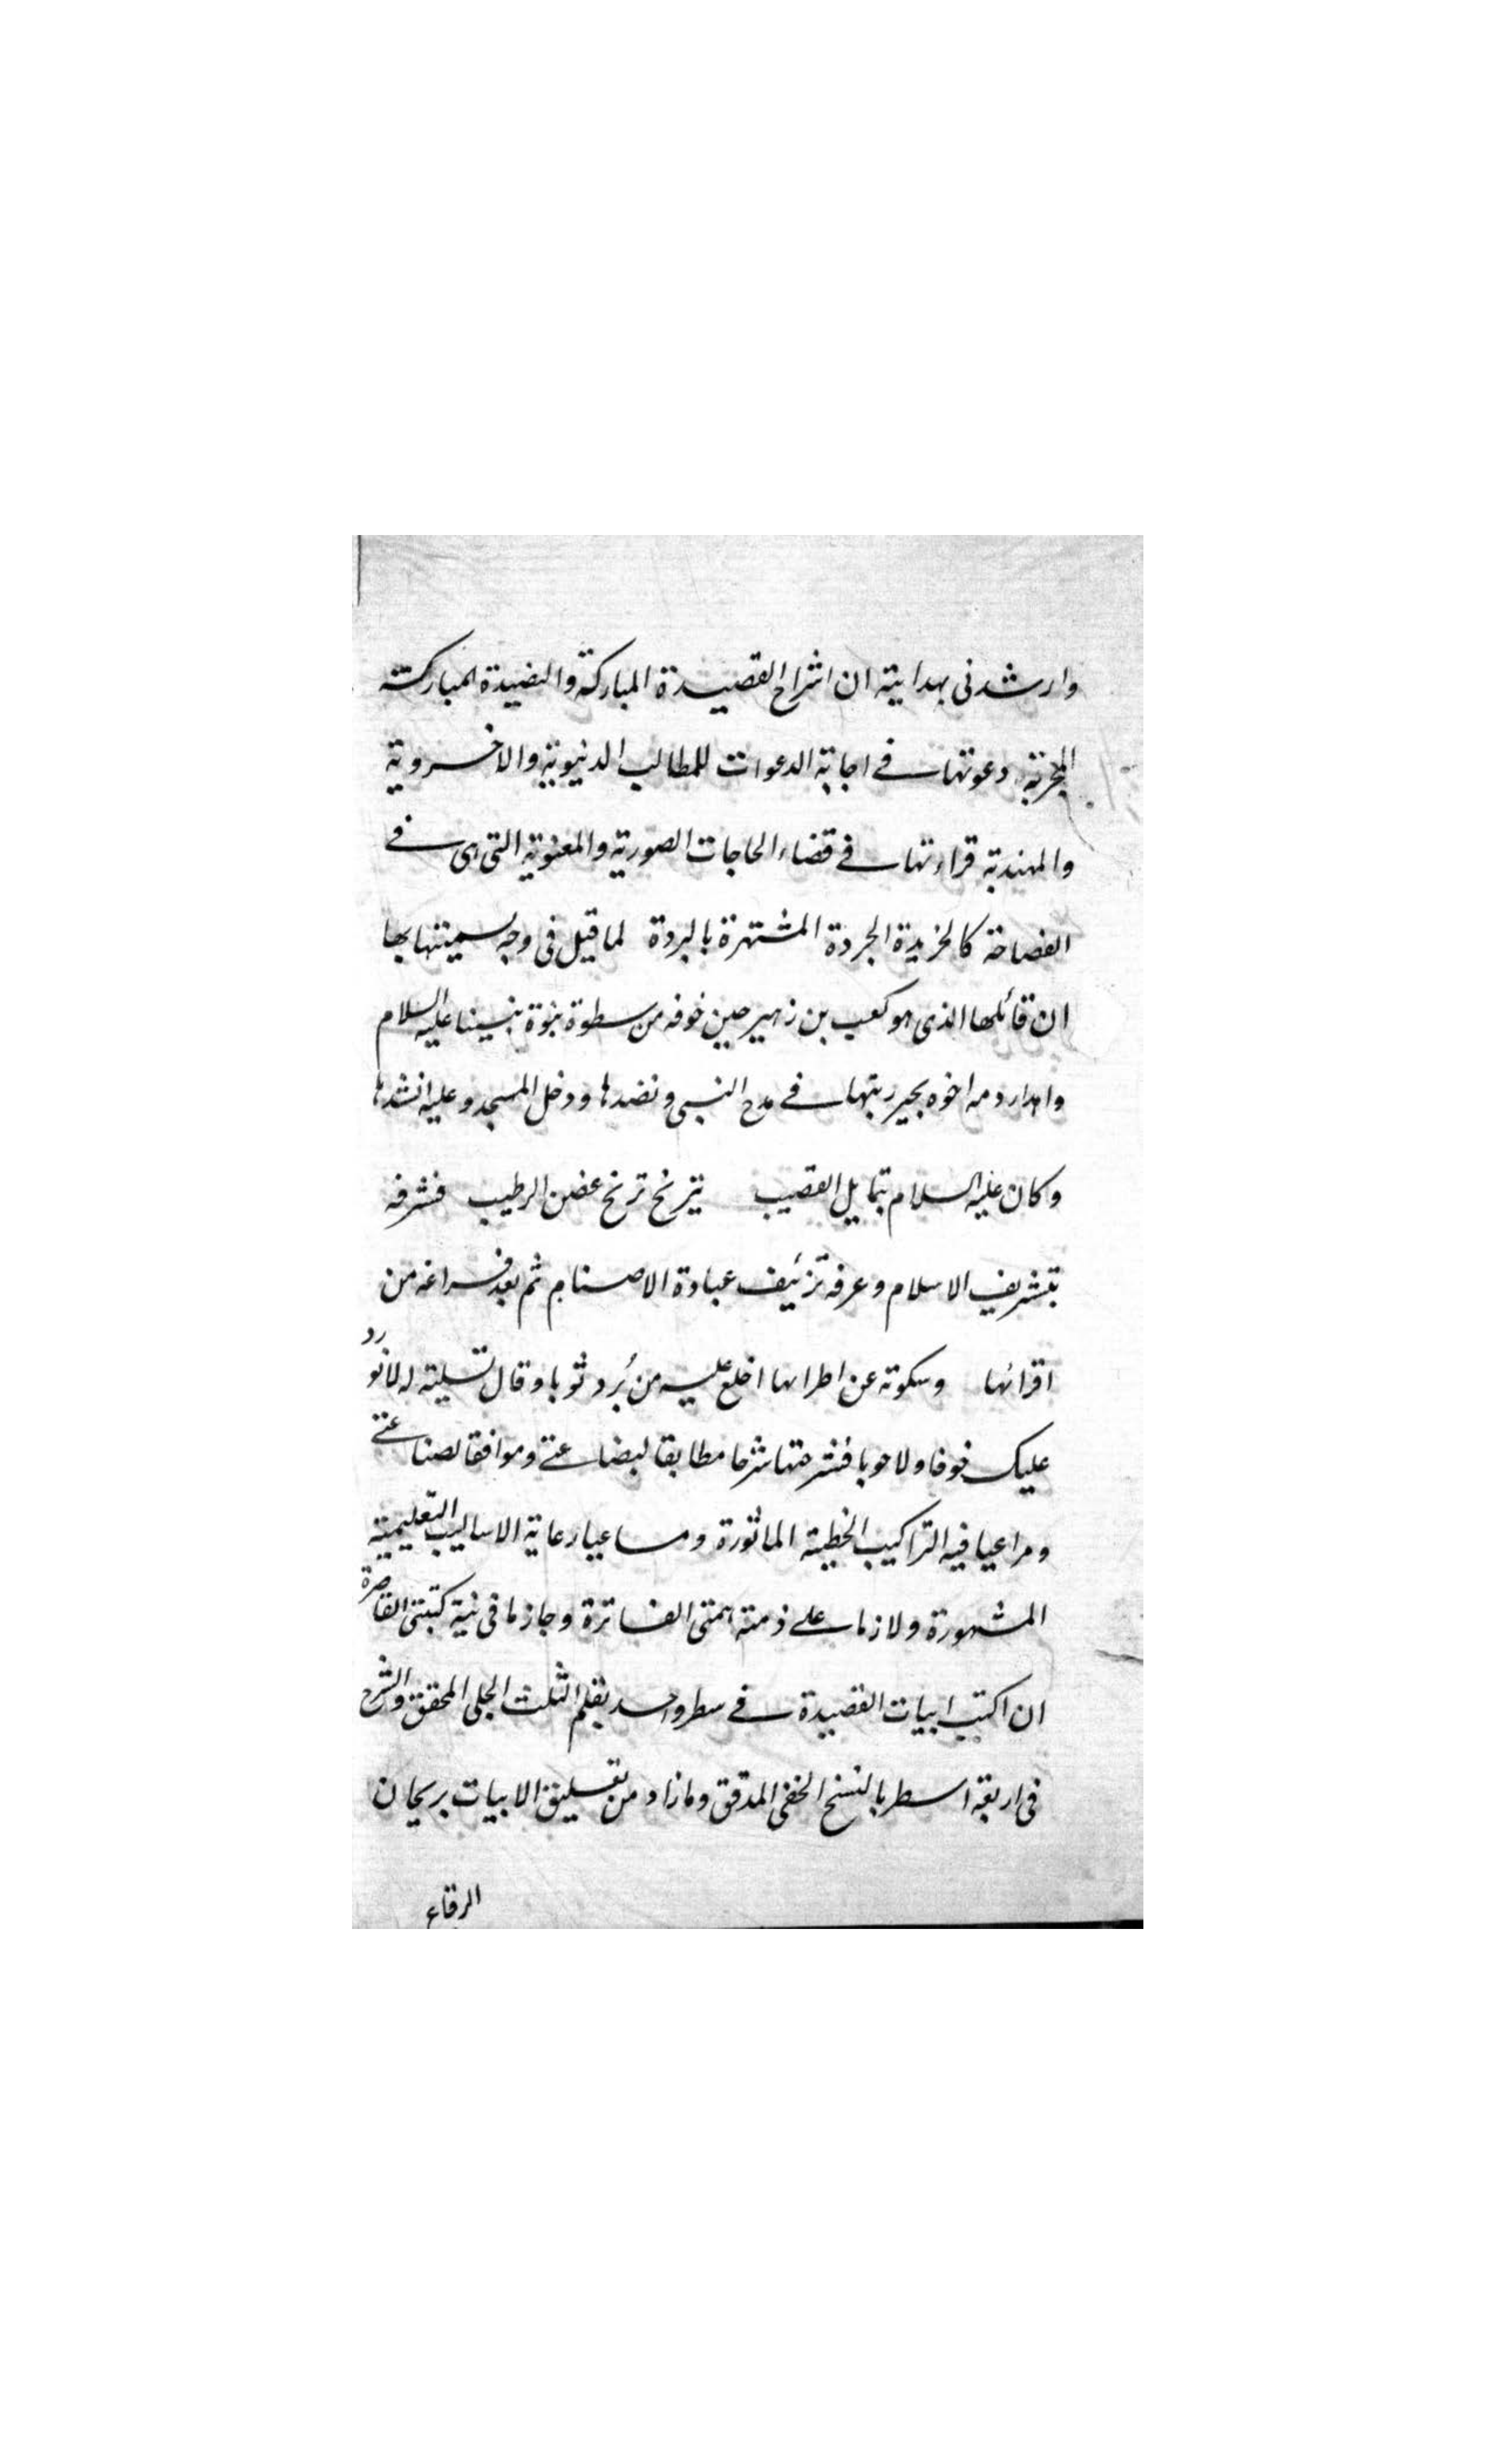 وارشدنى بهدايته ان اشرح القصيدة المباركة والنضيدة المباركة
المجربة دعوتها فى اجابة الدعوات للمطالب الدنيوية والاخروية
والمهذبة قراءتها فى قضاء الحاجات الصورية والمعنوية التى هى فى
الفصاحة كالخريدة الجردة المشتهرة بالبردة لما قيل فى وجه تسميتها بها
ان قائلها الذى هو كعب بن زهير حين خوفه من سطوة نبوة نبينا عليه السلام
واهدار دمه اخوه بجير رتبها فى مدح النبى ونضدها ودخل المسجد وعليه انشدها
وكان عليه السلام تمايل القضيب يترنح ترنح غصن الرطيب فشرفه
بتشريف الاسلام وعرفه تزئيف عبادة الاصنام ثم بعد فراغه من
اقرائها وسكوته عن اطرائها اخلع عليه من برد ثوبا وقال تسلية له لا تورد
عليك خوفا ولا حوبا فشرحتها شرحا مطابقا لبضاعتى وموافقا لصناعتى
ومراعيا فيه التراكيب الخطية الماثورة ومساعيا رعاية الاساليب التعليمية
المشهورة ولازما على ذمة همتى الفاترة وجازما فى نية كتبتى القاصرة
ان اكتب ابيات القصيدة فى سطر واحد بقلم الثلث الجلى المحقق والشرح
فى اربعة اسطر بالنسخ الخفى المدقق وما زاد من تعليق الابيات بريحان
الرقاع